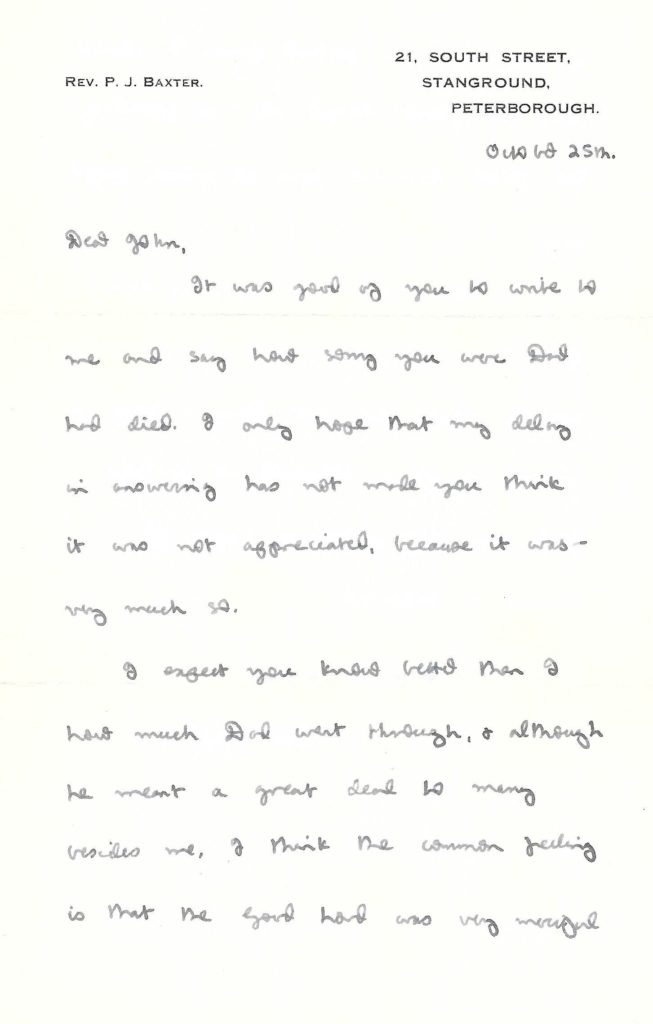 REV. P. J. BAXTER.
21, SOUTH STREET,
STANGROUND,
PETERBOROUGH.
October 25th.
Dear John,
It was good of you to write to
me and say how sorry you were Dad
had died. I only hope that my delay
in answering has not made you think
it was not appreciated, because it was -
very much so.
I expect you know better than I
how much Dad went through, & although
he meant a great deal to many
besides me, I think the common feeling
is that the Good Lord was very merciful